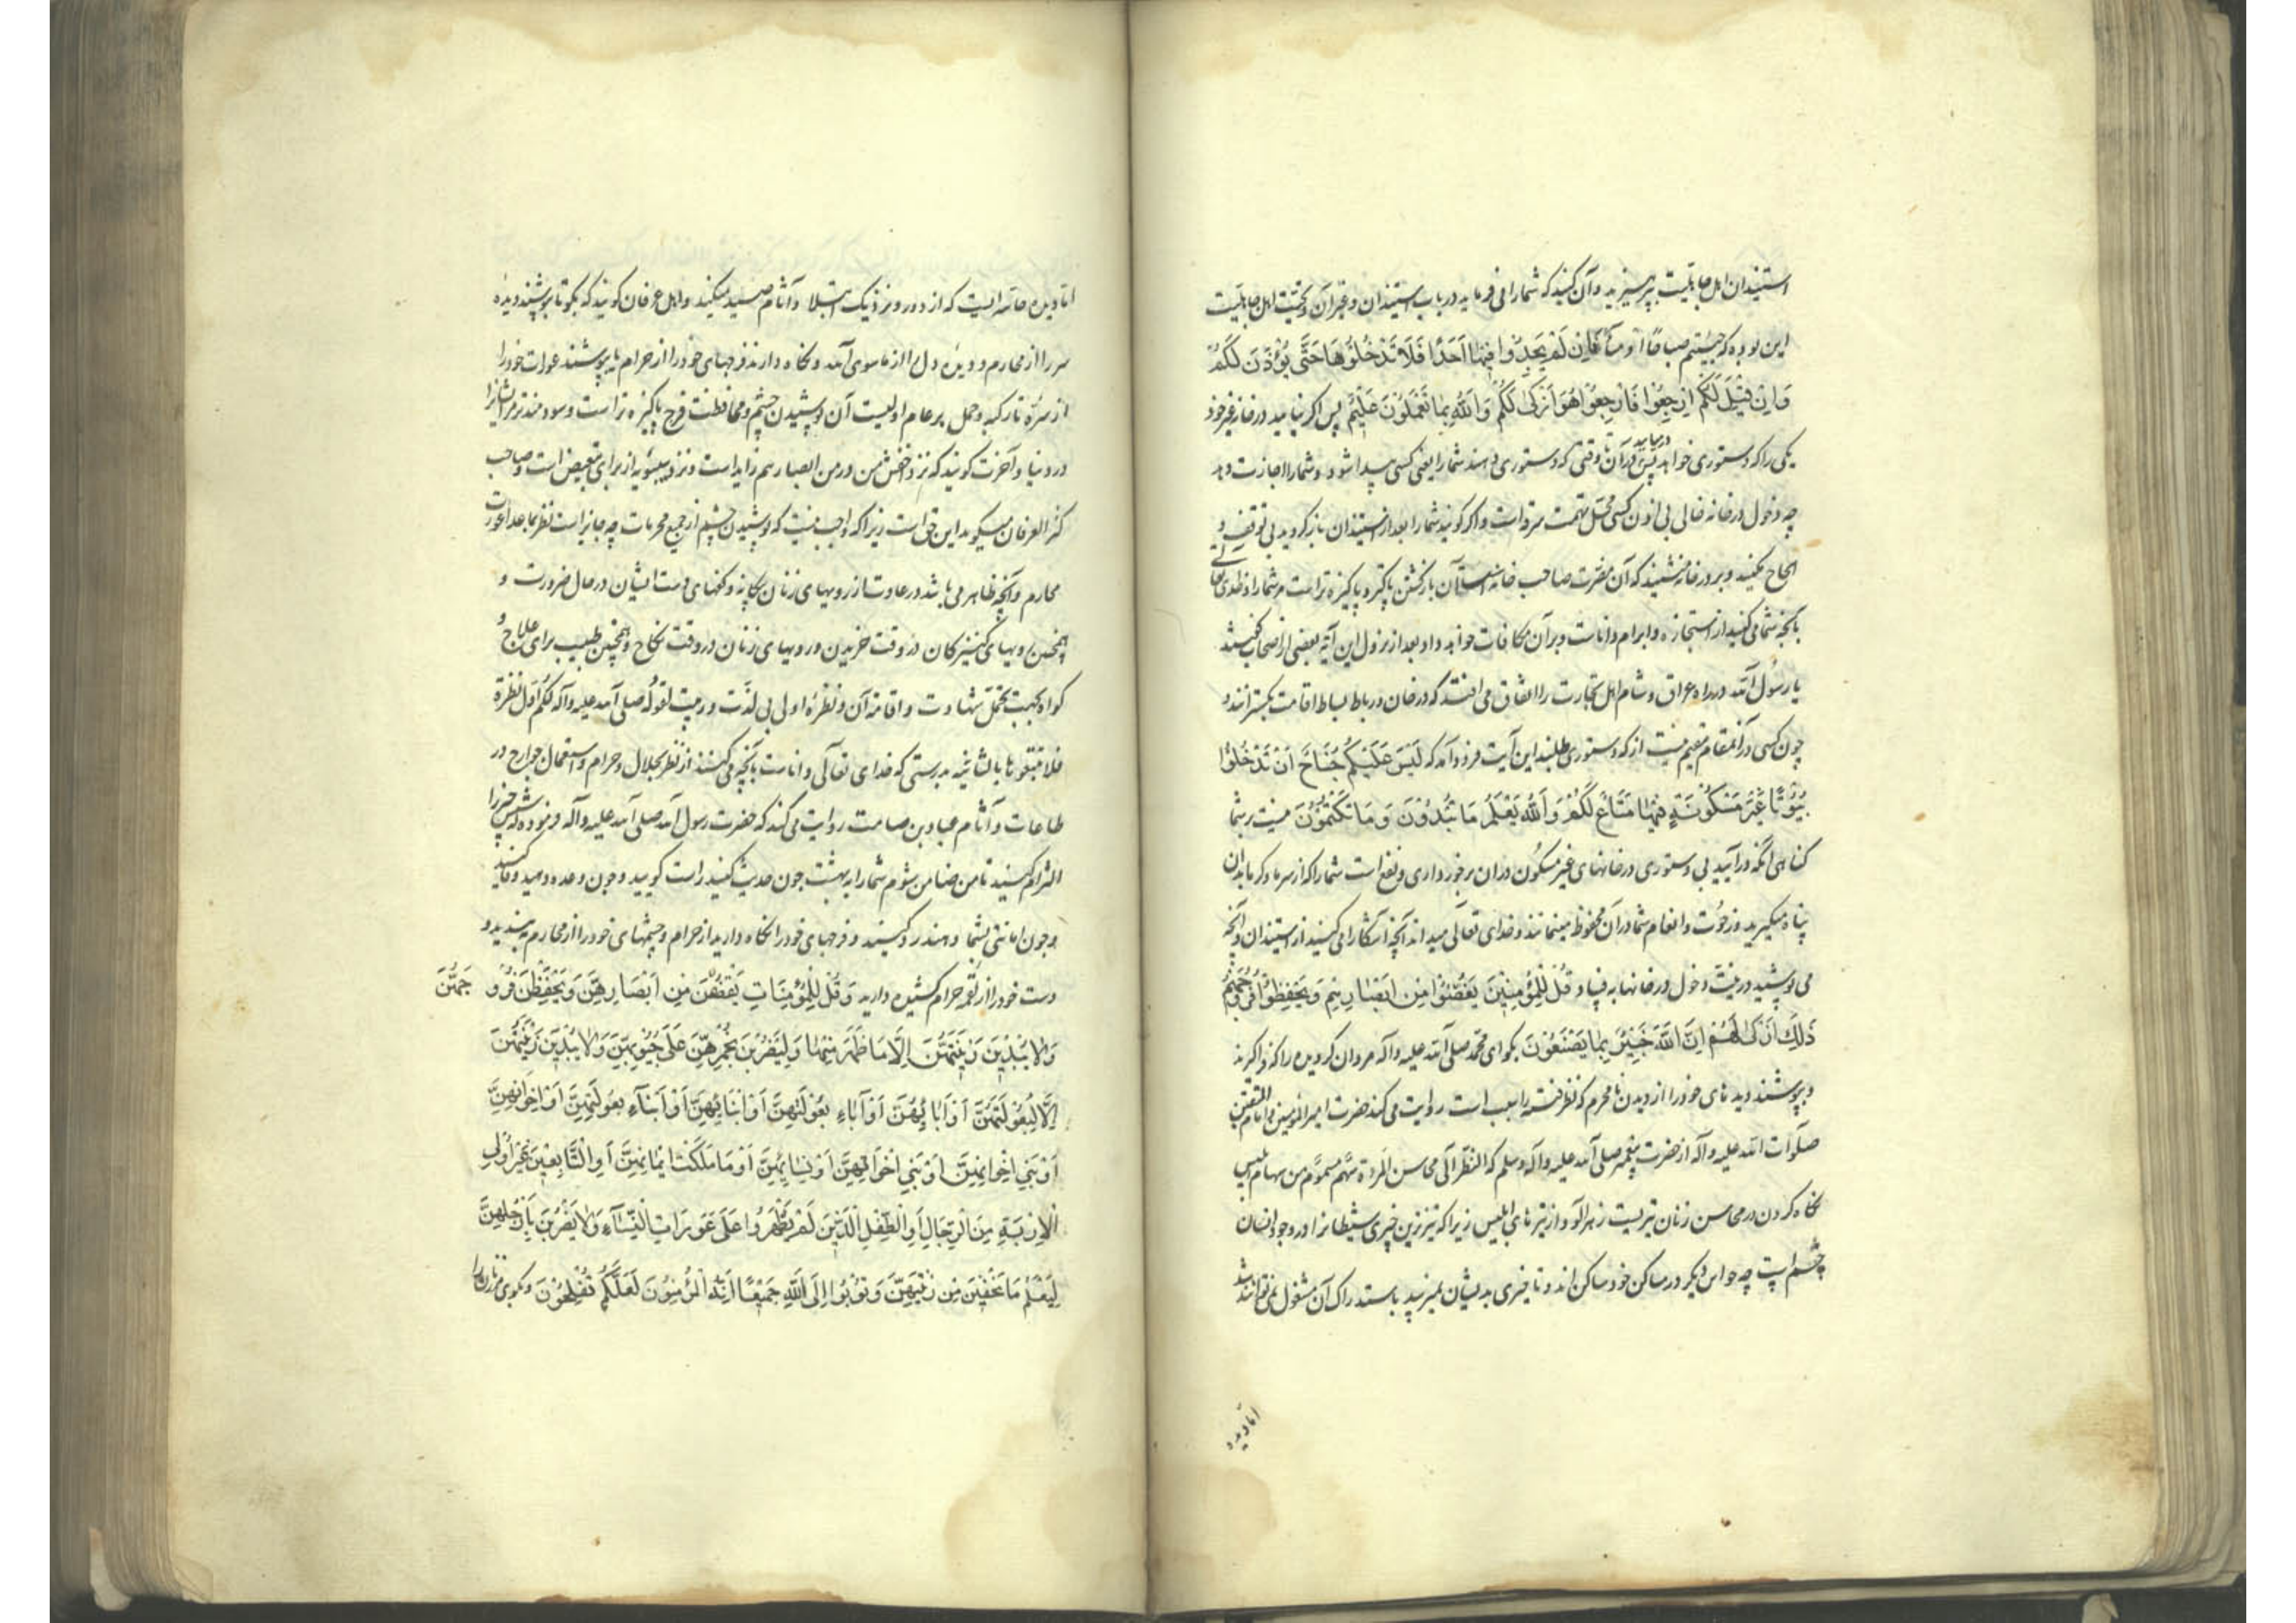 استیذان اهل جاهلیت بپرهیزید و آن کنید که شما را می فرماید در باب استیذان و غیر آن و تحیّت اهل جاهلیّت
این بوده که حییتم صباحًا او مسآءً فَاِنْ لَمْ یَجِدُوا فِیْهٰا اَحَدًا فَلَا تَدْخُلُوْهَا حَتّٰی یُؤْذَنَ لَکُمْ
وَاِنْ قِیْلَ لَکُمُ ارْجِعُوْا فَارْجِعُوْا هُوَ اَزْکٰی لَکُمْ وَاللّٰهُ بِمٰا تَعْمَلُوْنَ عَلِیْمٌ پس اگر نیابید در خانه غیر خود
یکی را که دستوری خواهد پس در آن تا وقتی که دستوری دهند شما را یعنی کسی پیدا شود و شما را اجازت دهد
چه دخول در خانه خالی بی اذن کسی محل تهمت سرقه است و اگر گویند شما را بعد از استیذان باز گردید بی توقف و
الحاح مکنید و بر در خانه منشینید که آن مضرت صاحب خانه است آن بازگشتن پاکتر و پاکیزه تر است مر شما را و خدای تعالی
بآنچه شما می کنید از استجازه و ابرام داناست و بر آن مکافات خواهد داد بعد از نزول این آیة بعضی از اصحاب گفتند
یا رسول الله در راه عراق و شام اهل تجارت را اتفاق می افتد که در خان و رباط بساط اقامت بگسترانند و
چون کسی در آنمقام مقیم نیست از که دستوری طلبند این آیت فرود آمد که لَیْسَ عَلَیْکُمْ جُنَاحٌ اَنْ تَدْخُلُوْا
بُیُوْتًا غَیْرَ مَسْکُوْنَةٍ فِیْهٰا مَتَاعٌ لَکُمْ وَاللّٰهُ یَعْلَمُ مَا تُبْدُوْنَ وَمَا تَکْتُمُوْنَ نیست بر شما
گناهی آنکه درآیید بی دستوری در خانهای غیر مسکون در آن برخورداری و نفع است شما را که از سرما و گرما بدان
پناه میگیرید و رخوت و انعام شما در آن محفوظ میماند و خدای تعالی میداند آنچه آشکارا می کنید از استیذان و آنچه
می پوشید در نیت دخول در خانها به فساد قُلْ لِلْمُؤْمِنِیْنَ یَغُضُّوْا مِنْ اَبْصٰارِهِمْ وَیَحْفَظُوْا فُرُوْجَهُمْ
ذٰلِكَ اَزْکٰی لَهُمْ اِنَّ اللّٰهَ خَبِیْرٌ بِمٰا یَصْنَعُوْنَ بگو ای محمد صلی الله علیه و آله مردان گرویده را که فرا گیرند
و بپوشند دیدهای خود را از دیدن نامحرم که نظر فتنه را سبب است روایت می کند حضرت امیر المؤمنین و امام المتقین
صلوات الله علیه و آله از حضرت پیغمبر صلی الله علیه و آله و سلم که النظر الی محاسن المرءة سهم مسموم من سهام ابلیس
نگاه کردن در محاسن زنان تیریست زهرآلود از تیرهای ابلیس زیرا که تیزترین چیزی شیطانرا در وجود انسان
چشم است چه حواس دیگر در مساکن خود ساکن اند و تا چیزی بدیشان نمیرسد باستدراک آن مشغول نمی توانند شد
اما دیده
اما دیده حاسه ایست که از دور و نزدیک ابتلا و آثام صید میکند و اهل عرفان گویند که بگو تا بپوشند دیده
سر را از محارم و دیده دل را از ماسوی الله و نگاه دارند فرجهای خود را از حرام یا بپوشند عورات خود را
از سره تا رکبه و حمل بر عام اولیست آن پوشیدن چشم و محافظت فرج پاکیزه تر است و سودمندتر مر ایشانرا
در دنیا و آخرت گویند که نزد اخفش من در من ابصارهم زاید است و نزد سیبویه از برای تبعیض است و صاحب
کنز العرفان میگوید این حق است زیرا که واجب نیست که پوشیدن چشم از جمیع محرمات چه جایز است نظر بما عدا عورت
محارم و آنچه ظاهر می باشد در عادت از رویهای زنان بیگانه و کفهای دست ایشان در حال ضرورت و
همچنین رویهای کنیزکان در وقت خریدن و رویهای زنان در وقت نکاح و همچنین طبیب برای علاج و
گواه بجهت تحمل شهادت و اقامه آن و نظره اولی بی لذت و ریبت لقوله صلی الله علیه و آله لکم اول نظرة
فلا تتبعوها بالثانیة بدرستی که خدای تعالی داناست بآنچه می کنند از نظر بحلال و حرام و استعمال جوارح در
طاعات و آثام عبادة بن صامت روایت می کند که حضرت رسول الله صلی الله علیه و آله فرموده که شش چیز را
التزام کنید تا من ضامن شوم شما را به بهشت چون حدیث کنید راست گویید و چون وعده دهید وفا کنید
و چون امانتی بشما دهند رد کنید و فرجهای خود را نگاه دارید از حرام و چشمهای خود را از محارم بپوشید و
دست خود را از لقمه حرام کشیده دارید وَقُلْ لِلْمُؤْمِنَاتِ یَغْضُضْنَ مِنْ اَبْصَارِهِنَّ وَیَحْفَظْنَ فُرُوجَهُنَّ
وَلَا یُبْدِیْنَ زِیْنَتَهُنَّ اِلَّا مَا ظَهَرَ مِنْهٰا وَلْیَضْرِبْنَ بِخُمُرِهِنَّ عَلٰی جُیُوْبِهِنَّ وَلَا یُبْدِیْنَ زِیْنَتَهُنَّ
اِلَّا لِبُعُوْلَتِهِنَّ اَوْ اٰبَائِهِنَّ اَوْ اٰبَاءِ بُعُوْلَتِهِنَّ اَوْ اَبْنَائِهِنَّ اَوْ اَبْنَآءِ بُعُوْلَتِهِنَّ اَوْ اِخْوَانِهِنَّ
اَوْ بَنِی اِخْوَانِهِنَّ اَوْ بَنِی اَخَوَاتِهِنَّ اَوْ نِسَائِهِنَّ اَوْ مَا مَلَکَتْ اَیْمَانُهُنَّ اَوِ التَّابِعِیْنَ غَیْرِ اُولِی
الْاِرْبَةِ مِنَ الرِّجَالِ اَوِ الطِّفْلِ الَّذِیْنَ لَمْ یَظْهَرُوا عَلٰی عَوْرَاتِ النِّسَآءِ وَلَا یَضْرِبْنَ بِاَرْجُلِهِنَّ
لِیُعْلَمَ مَا یُخْفِیْنَ مِنْ زِیْنَتِهِنَّ وَتُوْبُوْا اِلَی اللّٰهِ جَمِیْعًا اَیُّهَ الْمُؤْمِنُوْنَ لَعَلَّکُمْ تُفْلِحُوْنَ و بگوی مر زنان را